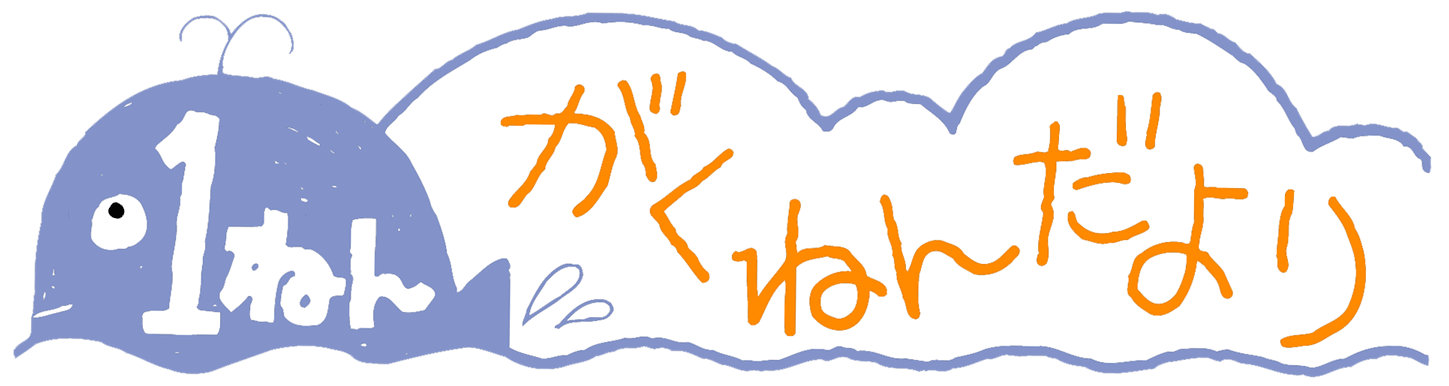 1ねん
がくねんだより